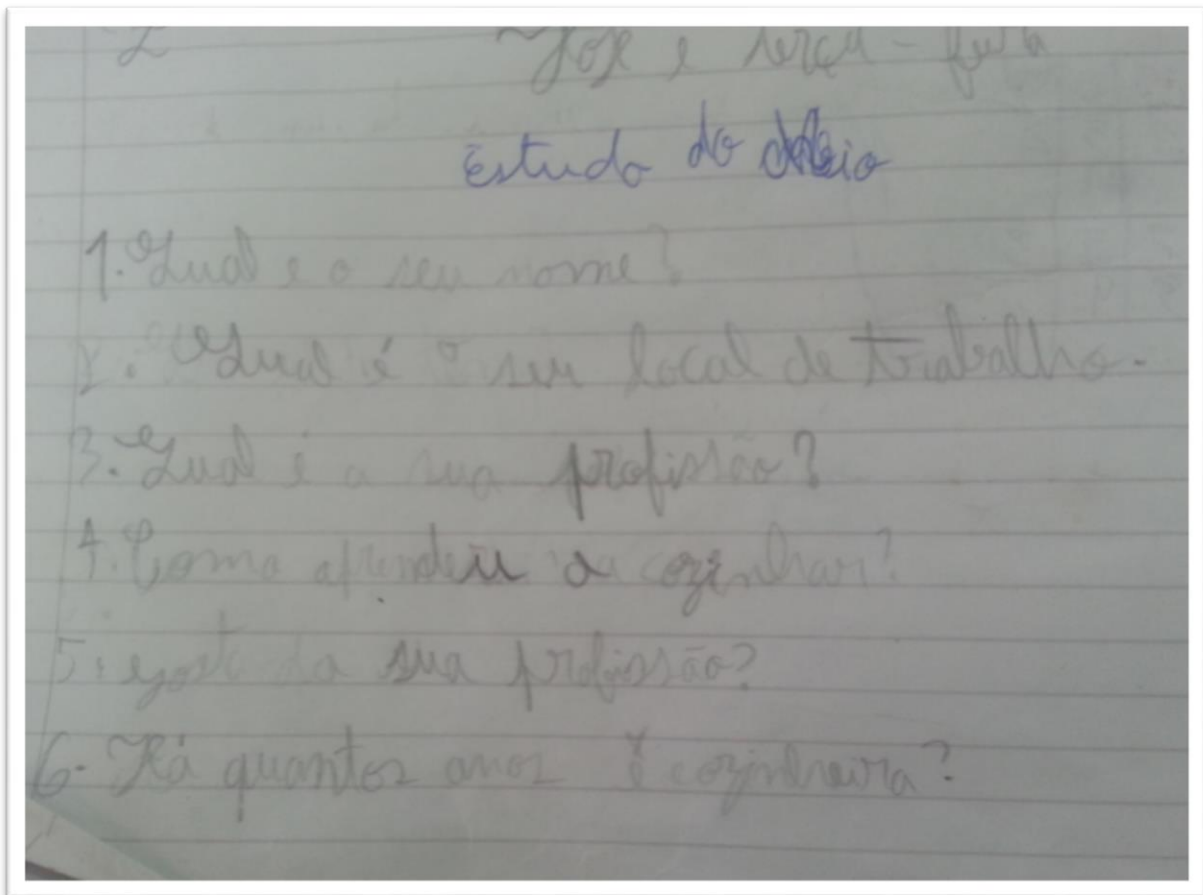 Hoje é terça-feira
Estudo do Meio
1. Qual e o seu nome?
2. Qual é o seu local de trabalho.
3. Qual é a sua profissão?
4. Como aprendeu a cozinhar?
5. gosta da sua profissão?
6- Há quantos anos é cozinheira?